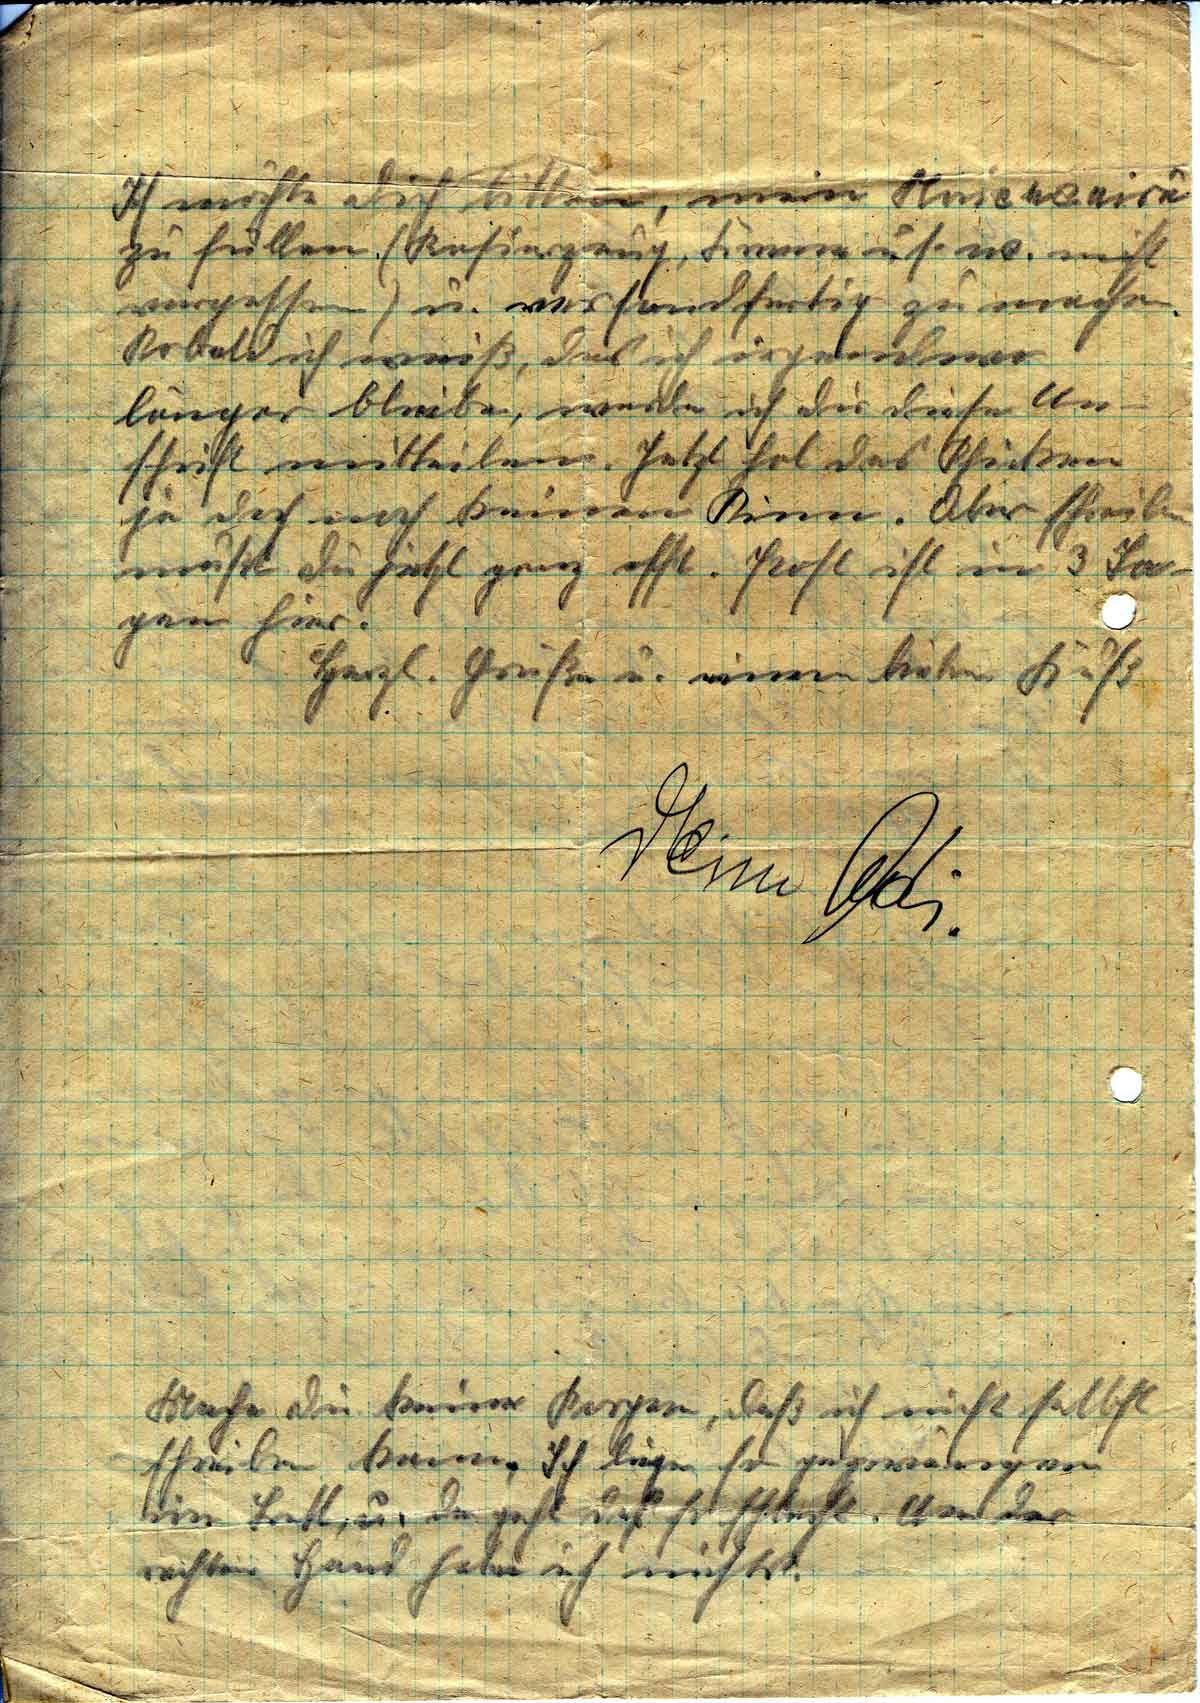 Ich möchte dich bitten, mein Necessaire
zu füllen (Rasierzeug, Creme u.s.w. nicht
vergessen) u. versandfertig zu machen.
Sobald ich weiß, das ich irgendwo
länger bleibe, werde ich dir diese An-
schrift mitteilen. Jetzt hat das Schicken
ja doch noch keinen Sinn. Aber schreiben
mußt du jetzt ganz offt. Post ist in 3 Ta-
gen hier.
Herzl. Grüße u. einen lieben Kuß
Dein Adi.
Mache dir keine Sorgen, daß ich nicht selbst
schreiben kann. Ich liege so
im Bett, u. da geht daß so schlecht. An der
rechten Hand habe ich nichts.